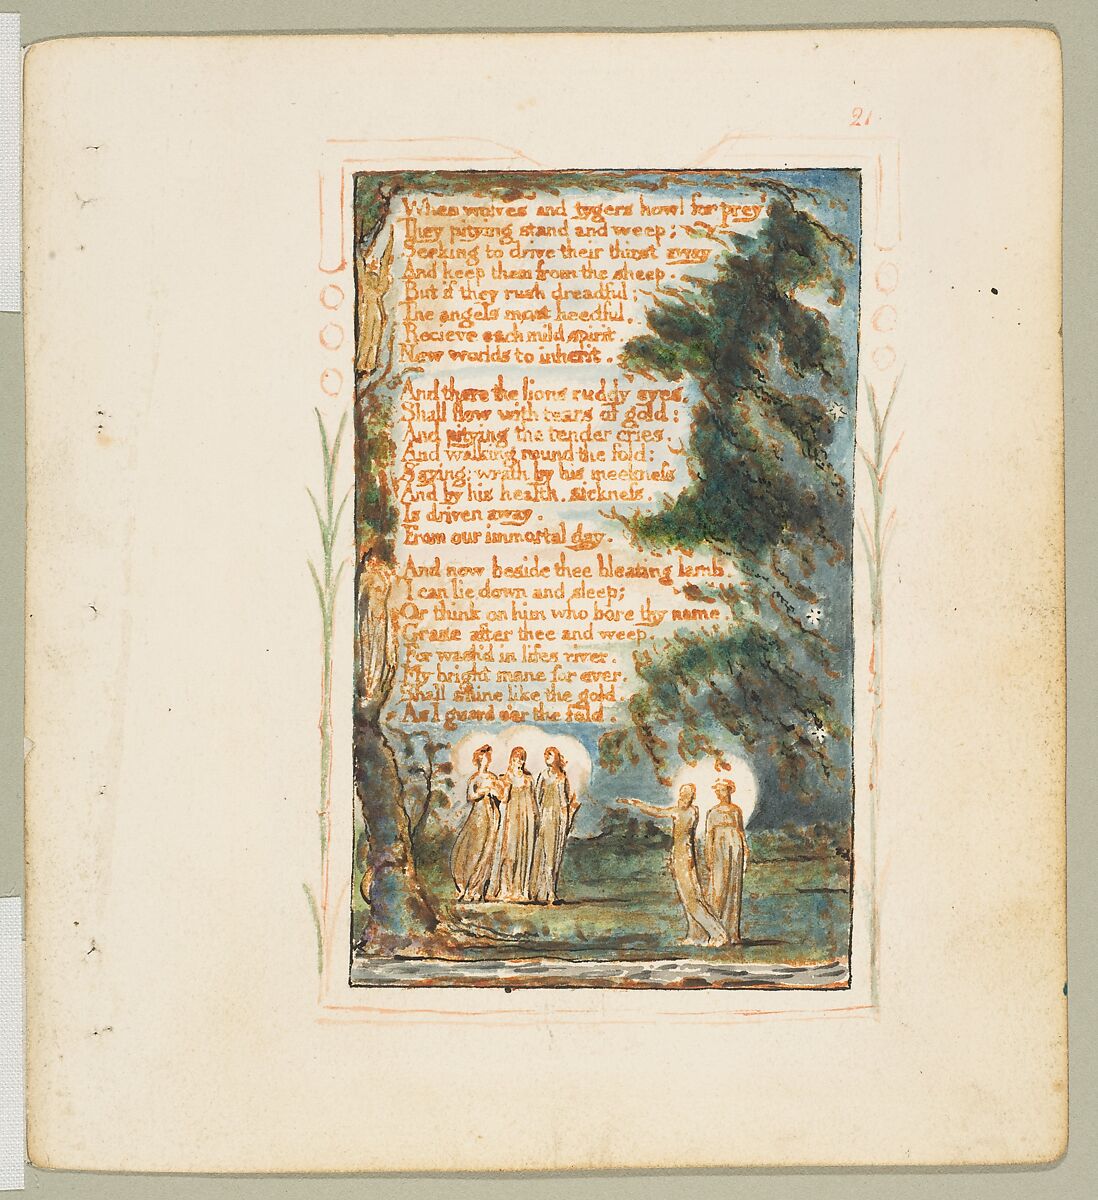 21.
When wolves and tygers howl for prey
They pitying stand and weep;
Seeking to drive their thirst away
And keep them from the sheep.
But if they rush dreadful;
The angels most heedful,
Recieve each mild spirit
New worlds to inherit.
And there the lions ruddy eyes,
Shall flow with tears of gold:
And pitying the tender cries,
And walking round the fold:
Saying: wrath by his meekneſs
And by his health, sickneſs,
Is driven away,
From our immortal day.
And now beside thee bleating lamb,
I can lie down and sleep;
Or think on him who bore thy name,
Graze after thee and weep.
For wash'd in lifes river,
My bright mane for ever,
Shall shine like the gold,
As I guard o'er the fold.